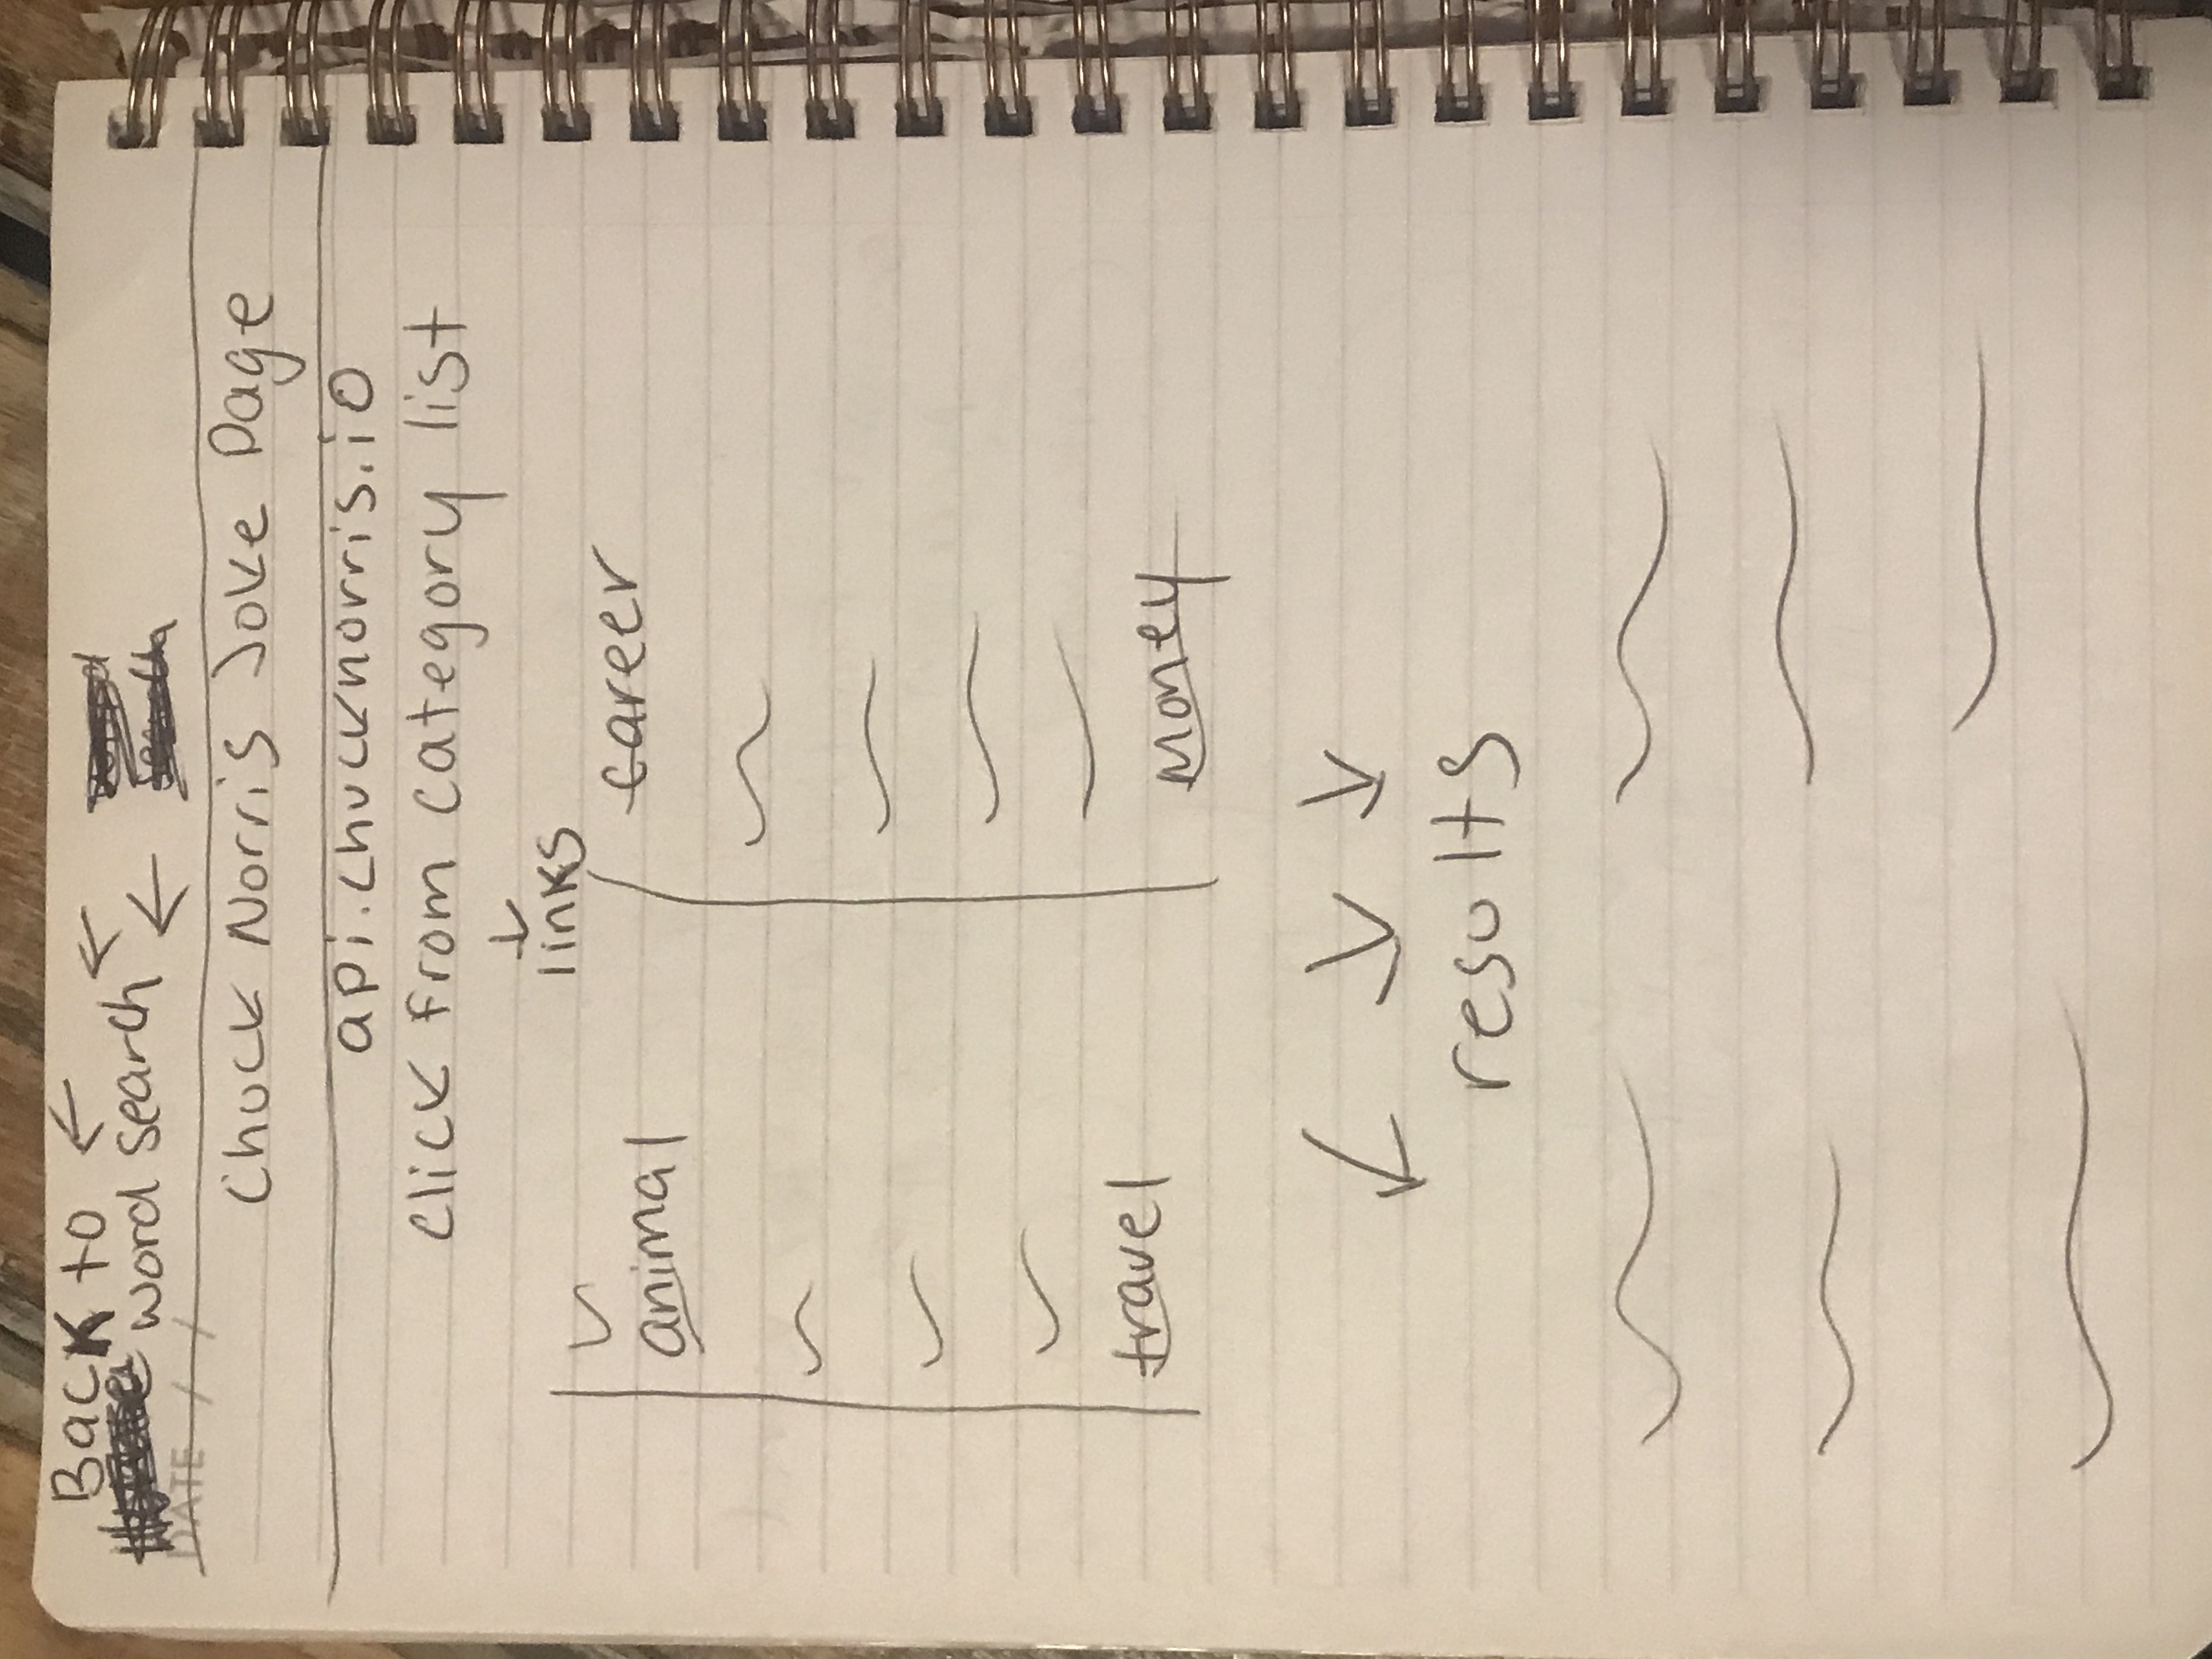 Back to
word search
DATE / /
Chuck Norris Joke Page
api.chucknorris.io
click from category list
links
animal
career
travel
money
results